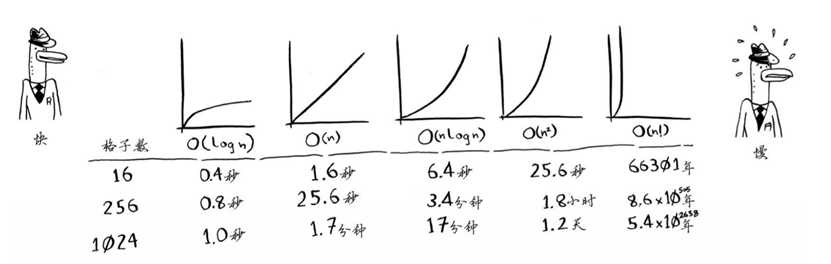 快
慢
格子数 O(log n) O(n) O(n log n) O(n²) O(n!)
16 0.4秒 1.6秒 6.4秒 25.6秒 66301年
256 0.8秒 25.6秒 3.4分钟 1.8小时 8.6x10⁵⁰⁵年
1024 1.0秒 1.7分钟 17分钟 1.2天 5.4x10²⁶³⁸年